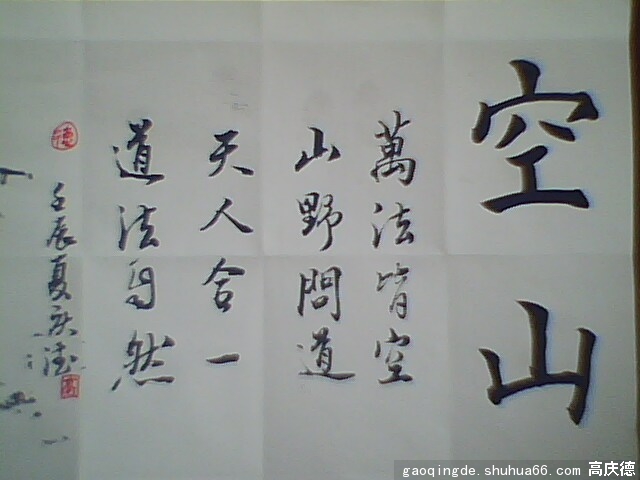 空山
萬法皆空
山野問道
天人合一
道法自然
壬辰夏庆德
德
gaoqingde.shuhua66.com 高庆德